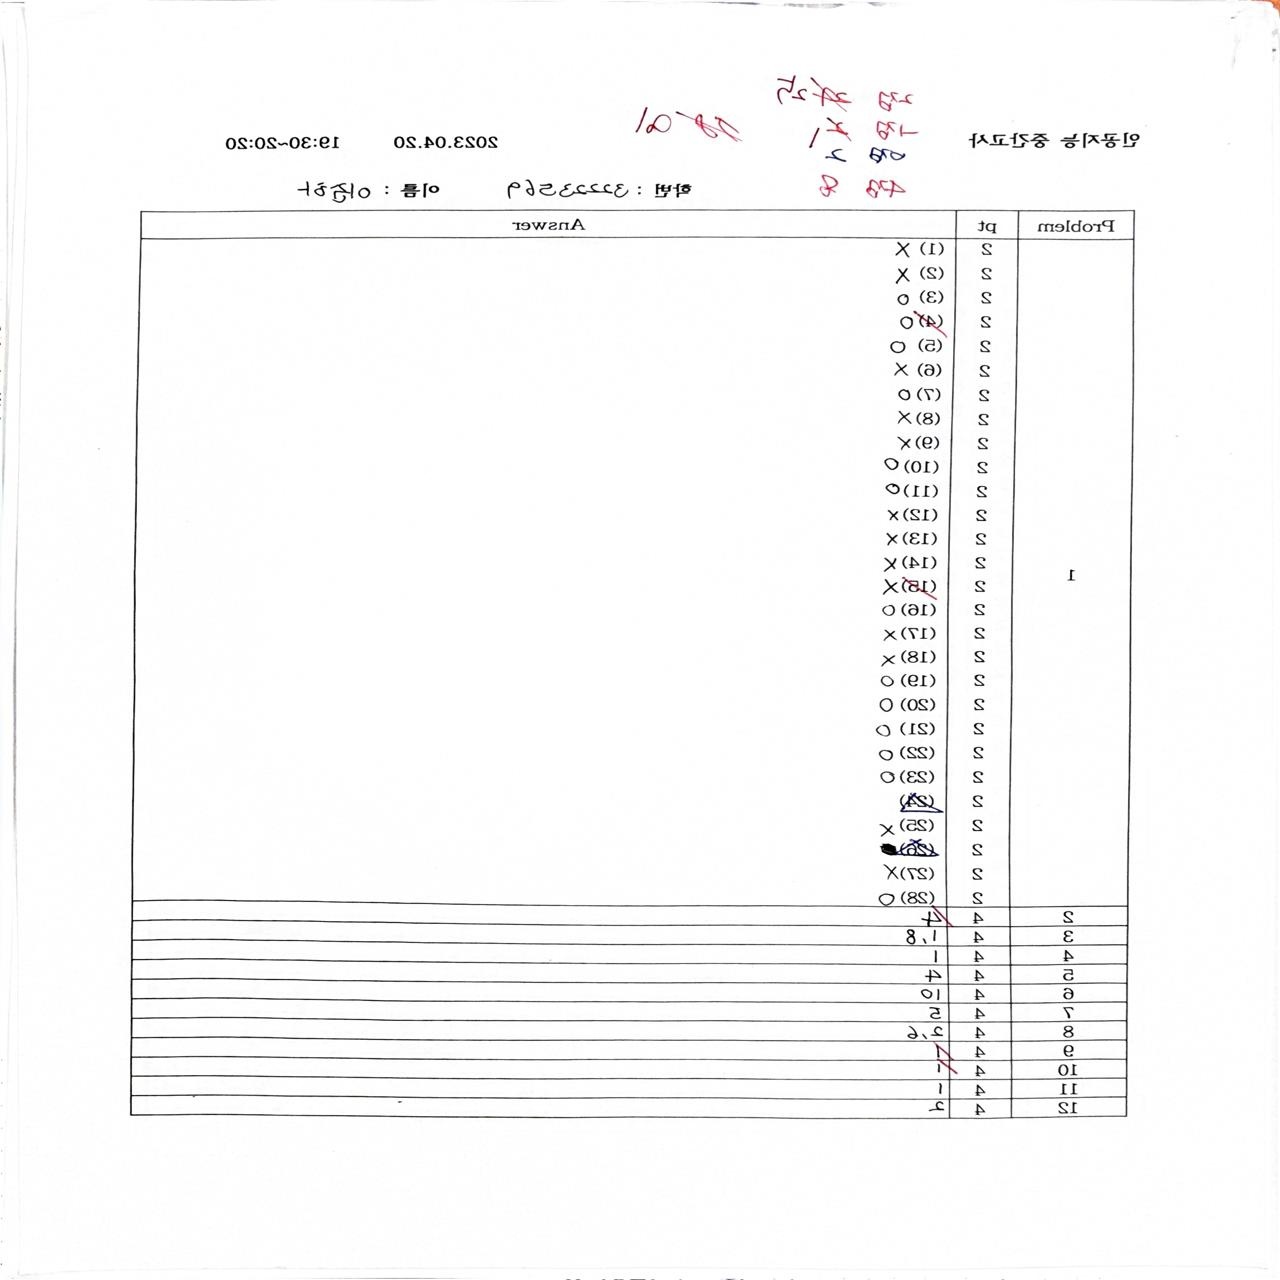 인공지능 중간고사 2023.04.20 19:30~20:20
2점
1점
0점 2
4점 8
91
학번 : 32223569 이름 : 이준하
Problem pt Answer
1
2 (1) X
2 (2) X
2 (3) O
2 (4) O
2 (5) O
2 (6) X
2 (7) O
2 (8) X
2 (9) X
2 (10) O
2 (11) O
2 (12) X
2 (13) X
2 (14) X
2 (15) X
2 (16) O
2 (17) X
2 (18) X
2 (19) O
2 (20) O
2 (21) O
2 (22) O
2 (23) O
2 (24)
2 (25) X
2 (26)
2 (27) X
2 (28) O
2 4 4
3 4 1, 8
4 4 1
5 4 4
6 4 10
7 4 5
8 4 2, 6
9 4 1
10 4 1
11 4 1
12 4 2